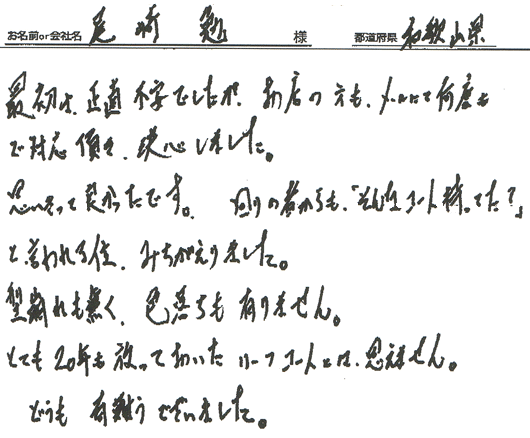 お名前or会社名 尾崎 勉 様 都道府県 和歌山県
最初は、正直不安でしたが、お店の方も、メールにて何度も
ご対応頂き、決心しました。
思いきって良かったです。 回りの者からも、「そんなコート持ってた?」
と言われる位、みちがえりました。
型崩れも無く、色落ちも有りません。
とても20年も放っておいたハーフコートとは、思えません。
どうも有難うございました。